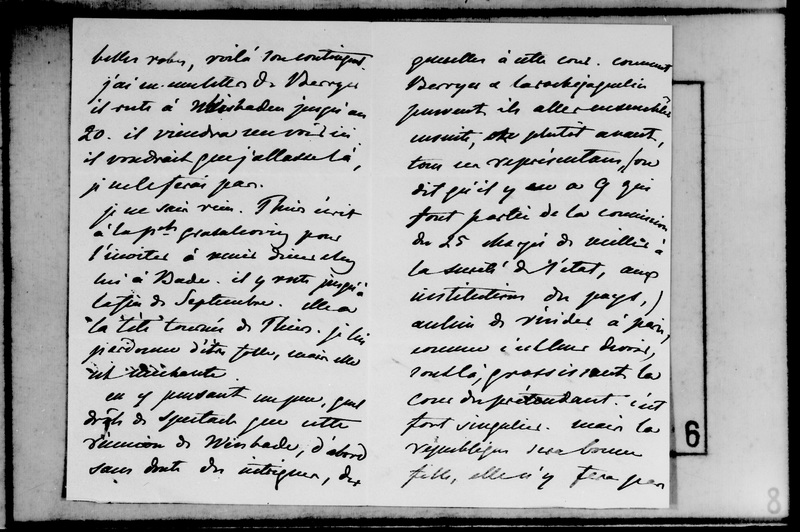 belles robes, voilà son contingent.
j'ai eu une lettre de Berryer
il reste à Wiesbaden jusqu'au
20. il viendra me voir ici
il voudrait que j'allasse là,
je ne le ferai pas.
je ne sais rien. Thiers écrit
à la Psse pour
l'inviter à venir diner chez
lui à Bade. il y reste jusqu'à
la fin de Septembre. elle a
"la tête" tournée de Thiers. je lui
pardonne d'être folle, mais elle
est méchante
en y pensant un peu, quel
drôle de spectacle que cette
réunion de Wiesbade, d'abord
sans doute des intrigues, des
querelles à cette cour. comment
Berryer & Larochejaquelin
peuvent ils aller ensemble
ensuite, ou plutôt avant,
tous ces représentans, (on
dit qu'il y en a 9 qui
font partie de la commission
des 25 chargés de veiller à
la sureté de l'état, aux
institutions du pays,)
au lieu de résider à paris,
comme c'est leur devoir,
sont là, grossissant la
cour du prétendant. c'est
fort singulier. mais la
république sera bonne
fille, elle n'y fera pas
6
8